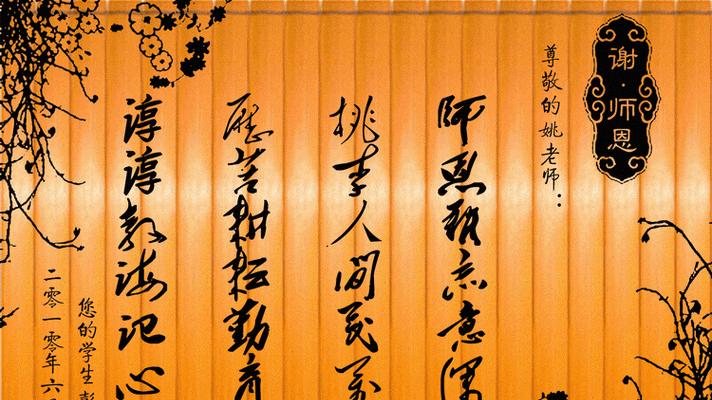 谢·师恩
尊敬的姚老师：
師恩難忘意深
桃李人間茂萬
歷苦耕耘勤育
谆谆教诲记心
您的学生彭
二零一零年六